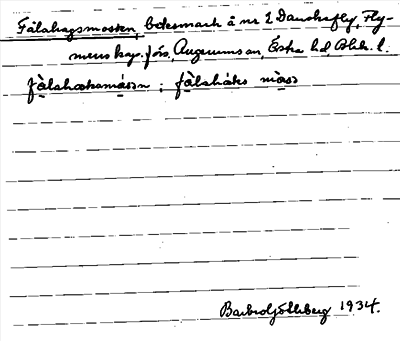 Fälahagsmossen, betesmark å nr 2 Danskefly, Fly-
mens kap. förs., Augerums sn, Östra hd, Blek. l.
fä̀lahakamåsən ; fä̀laháks mås
Barbro Göthberg 1934.